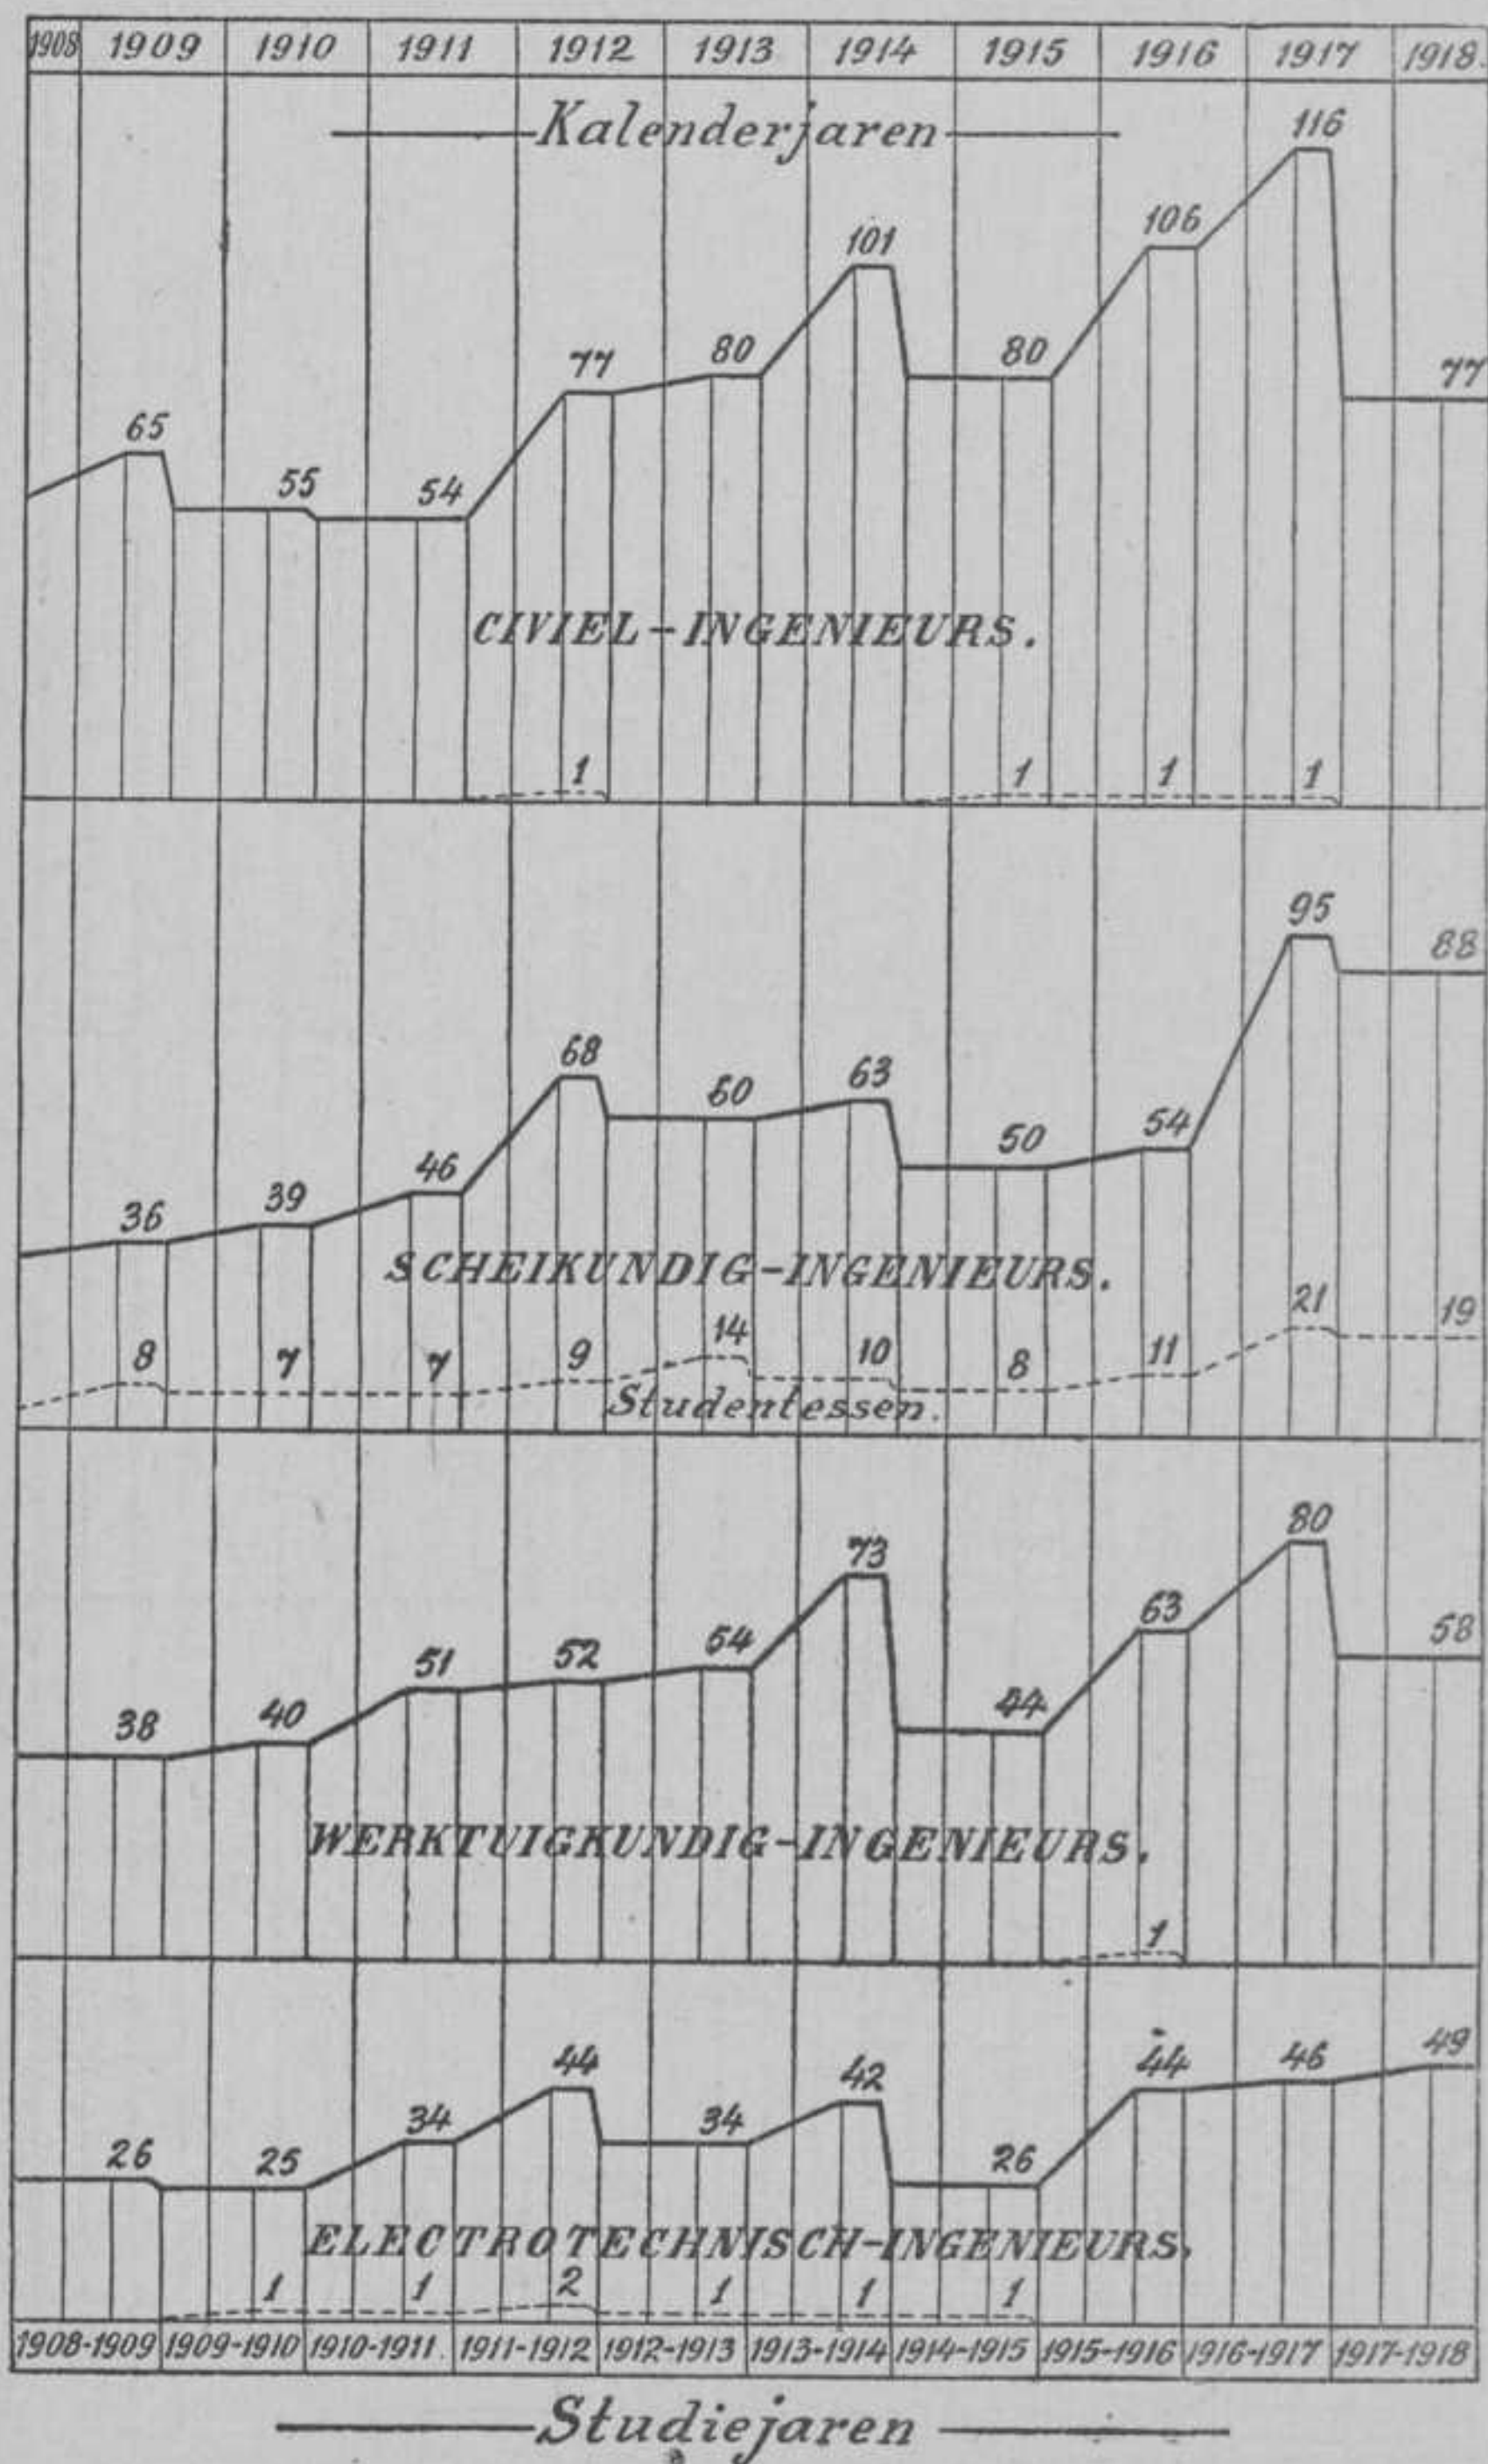 1908 1909 1910 1911 1912 1913 1914 1915 1916 1917 1918.
Kalenderjaren
116
106
101
80 80
77 77
65
55 54
CIVIEL-INGENIEURS.
1 1 1 1
95
88
68
60 63
50 54
46
39
36
SCHEIKUNDIG-INGENIEURS.
8 7 7 9 14 10 8 11 21 19
Studentessen.
80
73
63
58
51 52 54
44
38 40
WERKTUIGKUNDIG-INGENIEURS.
1
44 42 44 46 49
34 34
26 25 26
ELECTROTECHNISCH-INGENIEURS.
1 1 2 1 1 1
1908-1909 1909-1910 1910-1911. 1911-1912 1912-1913 1913-1914 1914-1915 1915-1916 1916-1917 1917-1918
Studiejaren